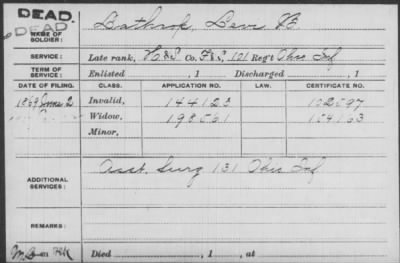 DEAD.
DEAD
NAME OF SOLDIER: Lathrop, Levi H.
SERVICE: Late rank, H&S Co. F&S, 121 Reg't Ohio Inf
TERM OF SERVICE: Enlisted , 1 Discharged , 1
DATE OF FILING. CLASS. APPLICATION NO. LAW. CERTIFICATE NO.
1869 June 2 Invalid, 144123 102097
Widow, 198061 164163
Minor,
ADDITIONAL SERVICES: Asst. Surg 131 Ohio Inf
REMARKS:
Died , 1 , at